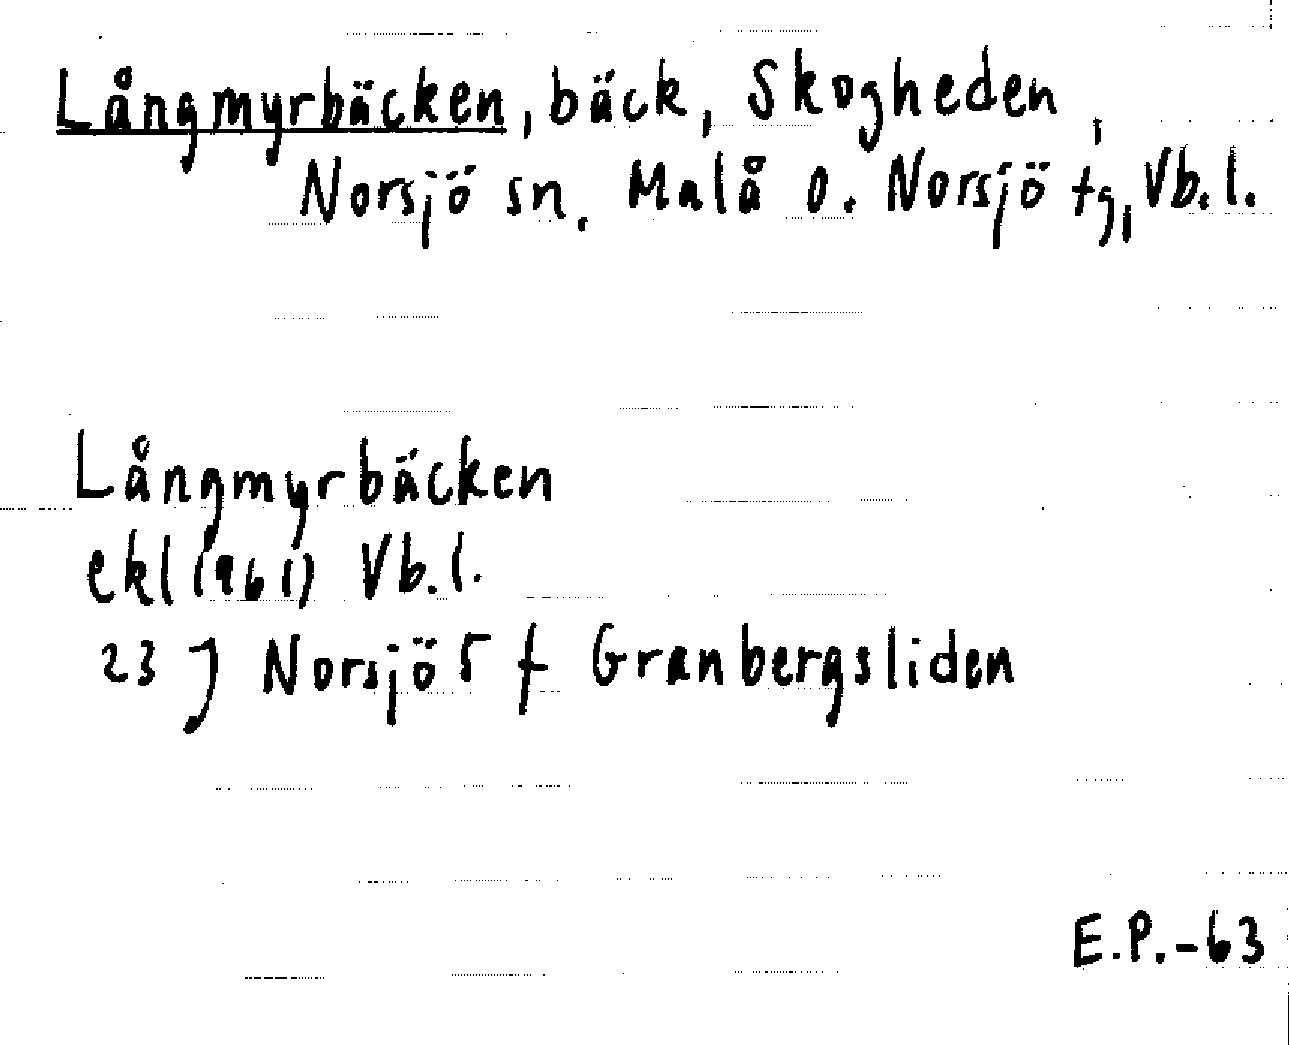 Långmyrbäcken, bäck, Skogheden,
Norsjö sn. Malå o. Norsjö tg, Vb.l.
Långmyrbäcken
ekl (1961) Vb.l.
23 J Norsjö 5 f Granbergsliden
E.P.-63